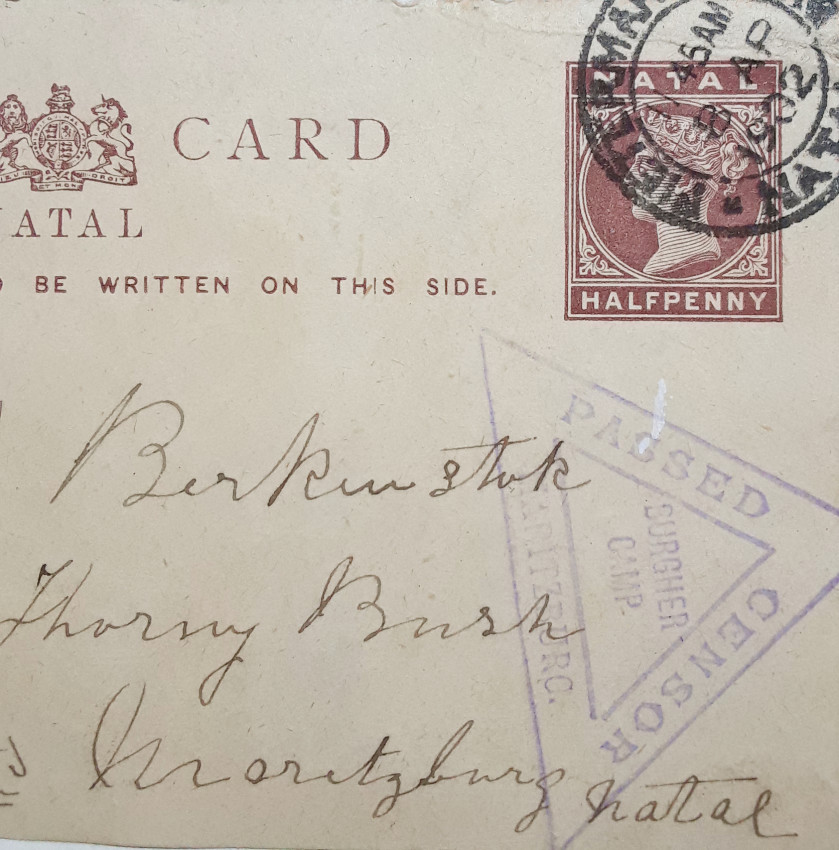 CARD
NATAL
BE WRITTEN ON THIS SIDE.
NATAL
HALFPENNY
45 AM
AP
02
PASSED
CENSOR
MARITZBURG.
BURGHER
CAMP.
Berkinstok
Thorny Bush
Moritzburg natal